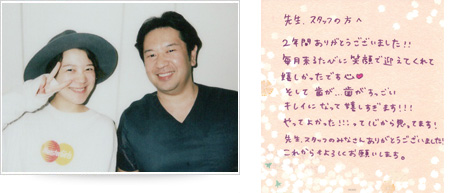 先生、スタッフの方へ
2年間ありがとうございました!!
毎月来るたびに笑顔で迎えてくれて
嬉しかったです♡♥
そして歯が…歯がすっごい
キレイになって嬉しすぎます!!!
やってよかった!!って心から思ってます!
先生、スタッフのみなさんありがとうございました!
これからもよろしくお願いします。